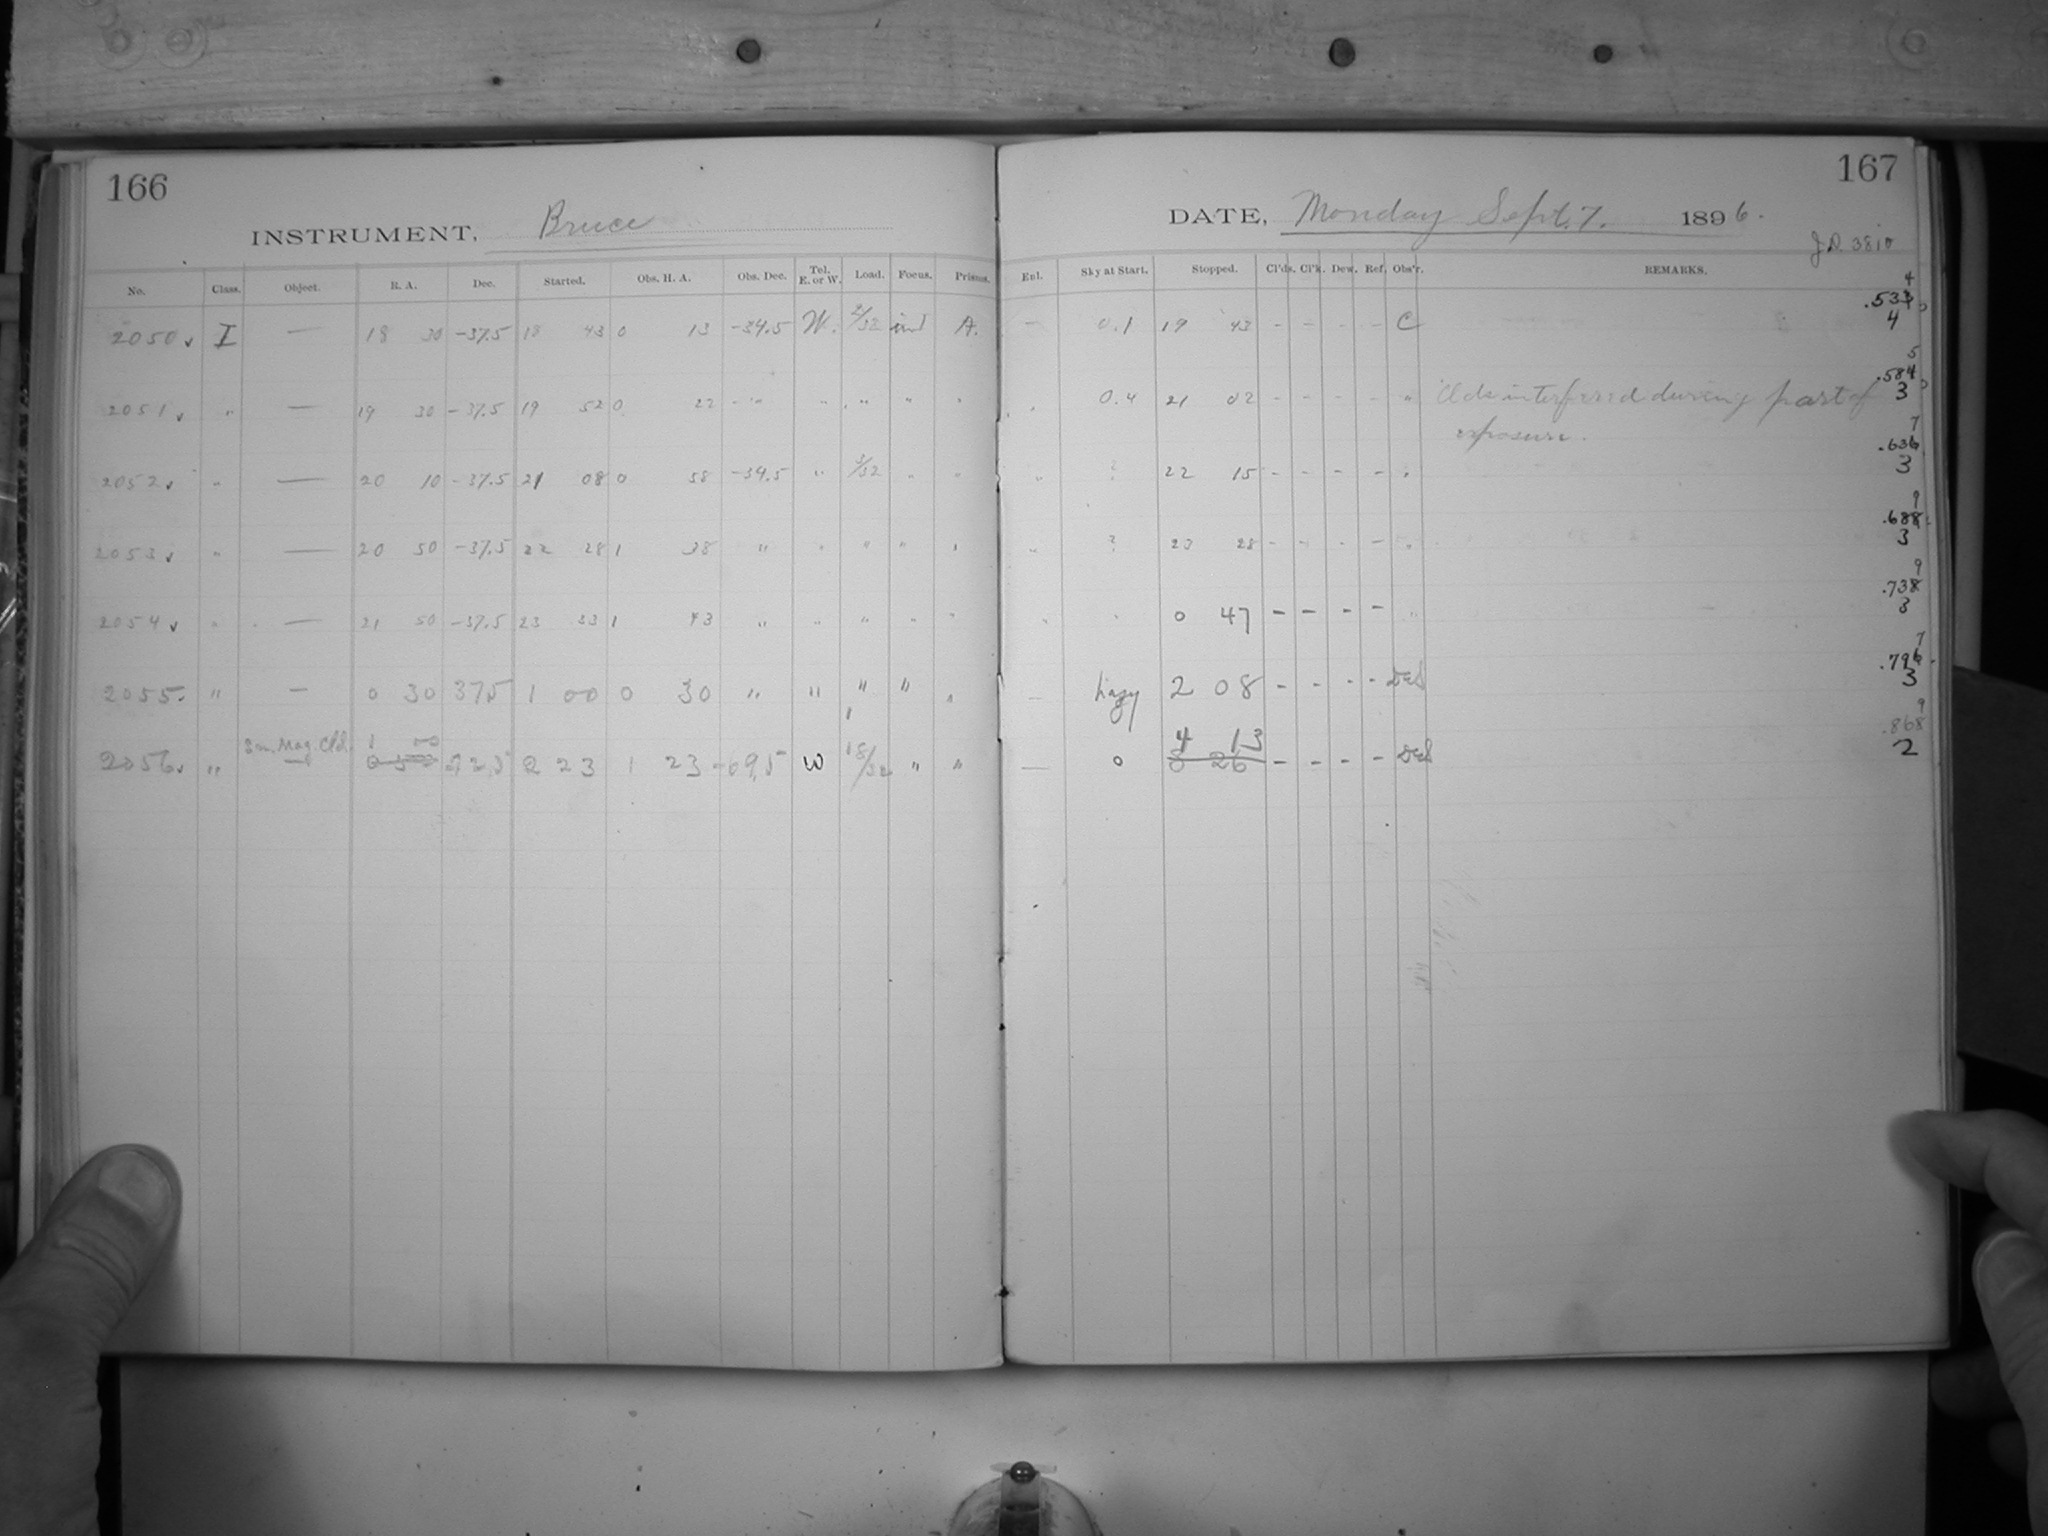 166
INSTRUMENT, Bruce
No. Class. Object. R. A. Dec. Started. Obs. H. A. Obs. Dec. Tel. E. or W. Load. Focus. Prisms.
2050 I — 18 30 -37.5 18 43 0 13 -34.5 W. 2/32 ind A.
2051 " — 19 30 -37.5 19 52 0 22 - " " " " "
2052 " — 20 10 -37.5 21 08 0 58 -34.5 " 3/32 " "
2053 " — 20 50 -37.5 22 28 1 38 " " " " "
2054 " — 21 50 -37.5 23 33 1 43 " " " " "
2055 " — 0 30 375 1 00 0 30 " " " " "
Sm. Mag. Cld. 1 00
2056 " — 2 23 1 23 -69.5 W 18/32 " "
167
DATE, Monday Sept. 7. 1896.
J.D. 3810
Enl. Sky at Start. Stopped. Cl'ds. Cl'k. Dew. Ref. Obs'r. REMARKS.
— 0.1 19 43 - - - - C 4
" 0.4 21 02 - - - - " Clds interfered during part of .584 3
exposure.
" ? 22 15 - - - - " .636 3
" ? 23 28 - - - - " .688 3
" " 0 47 - - - - " .738 3
— hazy 2 08 - - - - DES .796 3
4 13 .868
— 0 0 26 - - - - DES 2